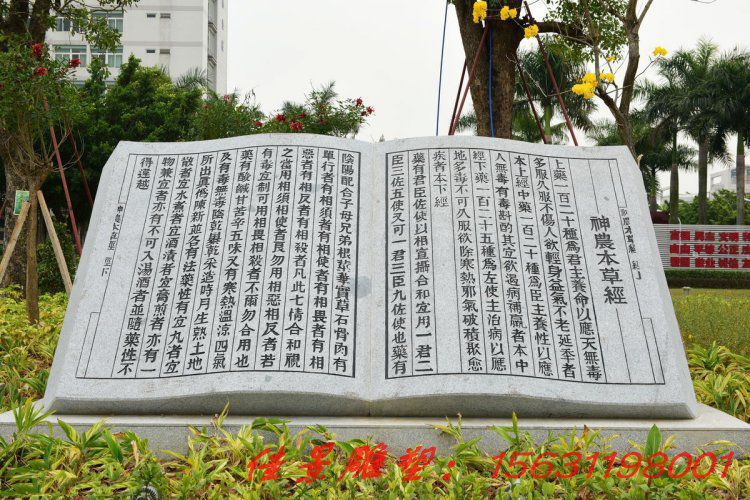 神農本草經
神農本草經
上藥一百二十種爲君主養命以應天無毒
多服久服不傷人欲輕身益氣不老延年者
本上經中藥一百二十種爲臣主養性以應
人無毒有毒斟酌其宜欲遏病補羸者本中
經下藥一百二十五種爲左使主治病以應
地多毒不可久服欲除寒熱邪氣破積聚愈
疾者本下經
藥有君臣佐使以相宣攝合和宜用一君二
臣三佐五使又可一君三臣九佐使也藥有
陰陽配合子母兄弟根莖華實草石骨肉有
單行者有相須者有相使者有相畏者有相
惡者有相反者有相殺者凡此七情合和視
之當用相須相使者良勿用相惡相反者若
有毒宜制可用相畏相殺者不爾勿合用也
藥有酸鹹甘苦辛五味又有寒熱溫涼四氣
及有毒無毒陰乾暴乾采造時月生熟土地
所出真僞陳新並各有法藥性有宜丸者宜
散者宜水煮者宜酒漬者宜膏煎者亦有一
物兼宜者亦有不可入湯酒者並隨藥性不
得違越
神農本草經
佳景雕塑：15631198001